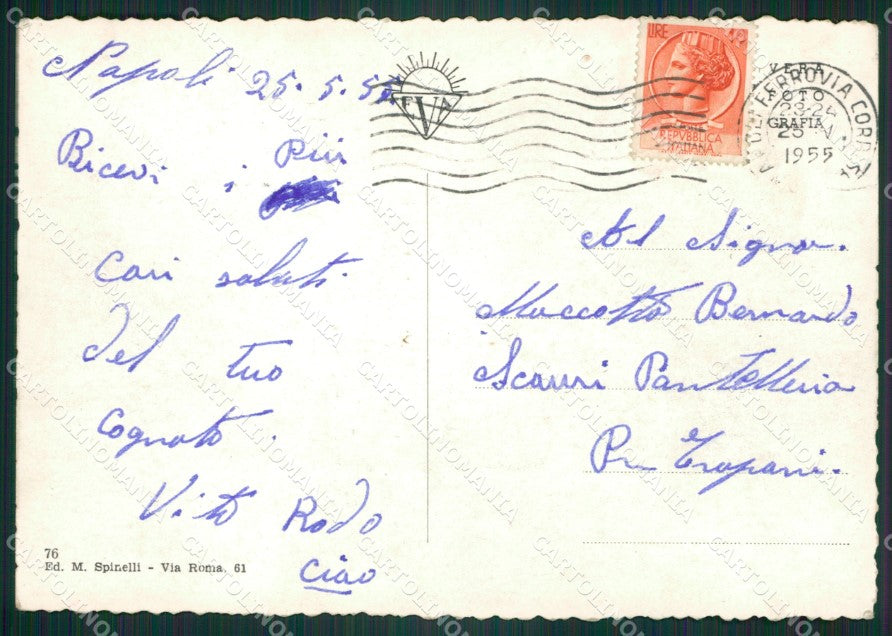 Napoli 25.5.55
Ricevi i Più
Cari saluti
del tuo
Cognato.
Vito Rodo
Ciao
76
Ed. M. Spinelli - Via Roma, 61
EVA
LIRE
REPVBBLICA
ITALIANA
VERA
FOTO
GRAFIA
FERROVIA CORR
23-24
25 V
1955
Al Signor.
Maccotta Bernardo
Scauri Pantelleria
Pr Trapani.
CARTOLINOMANIA